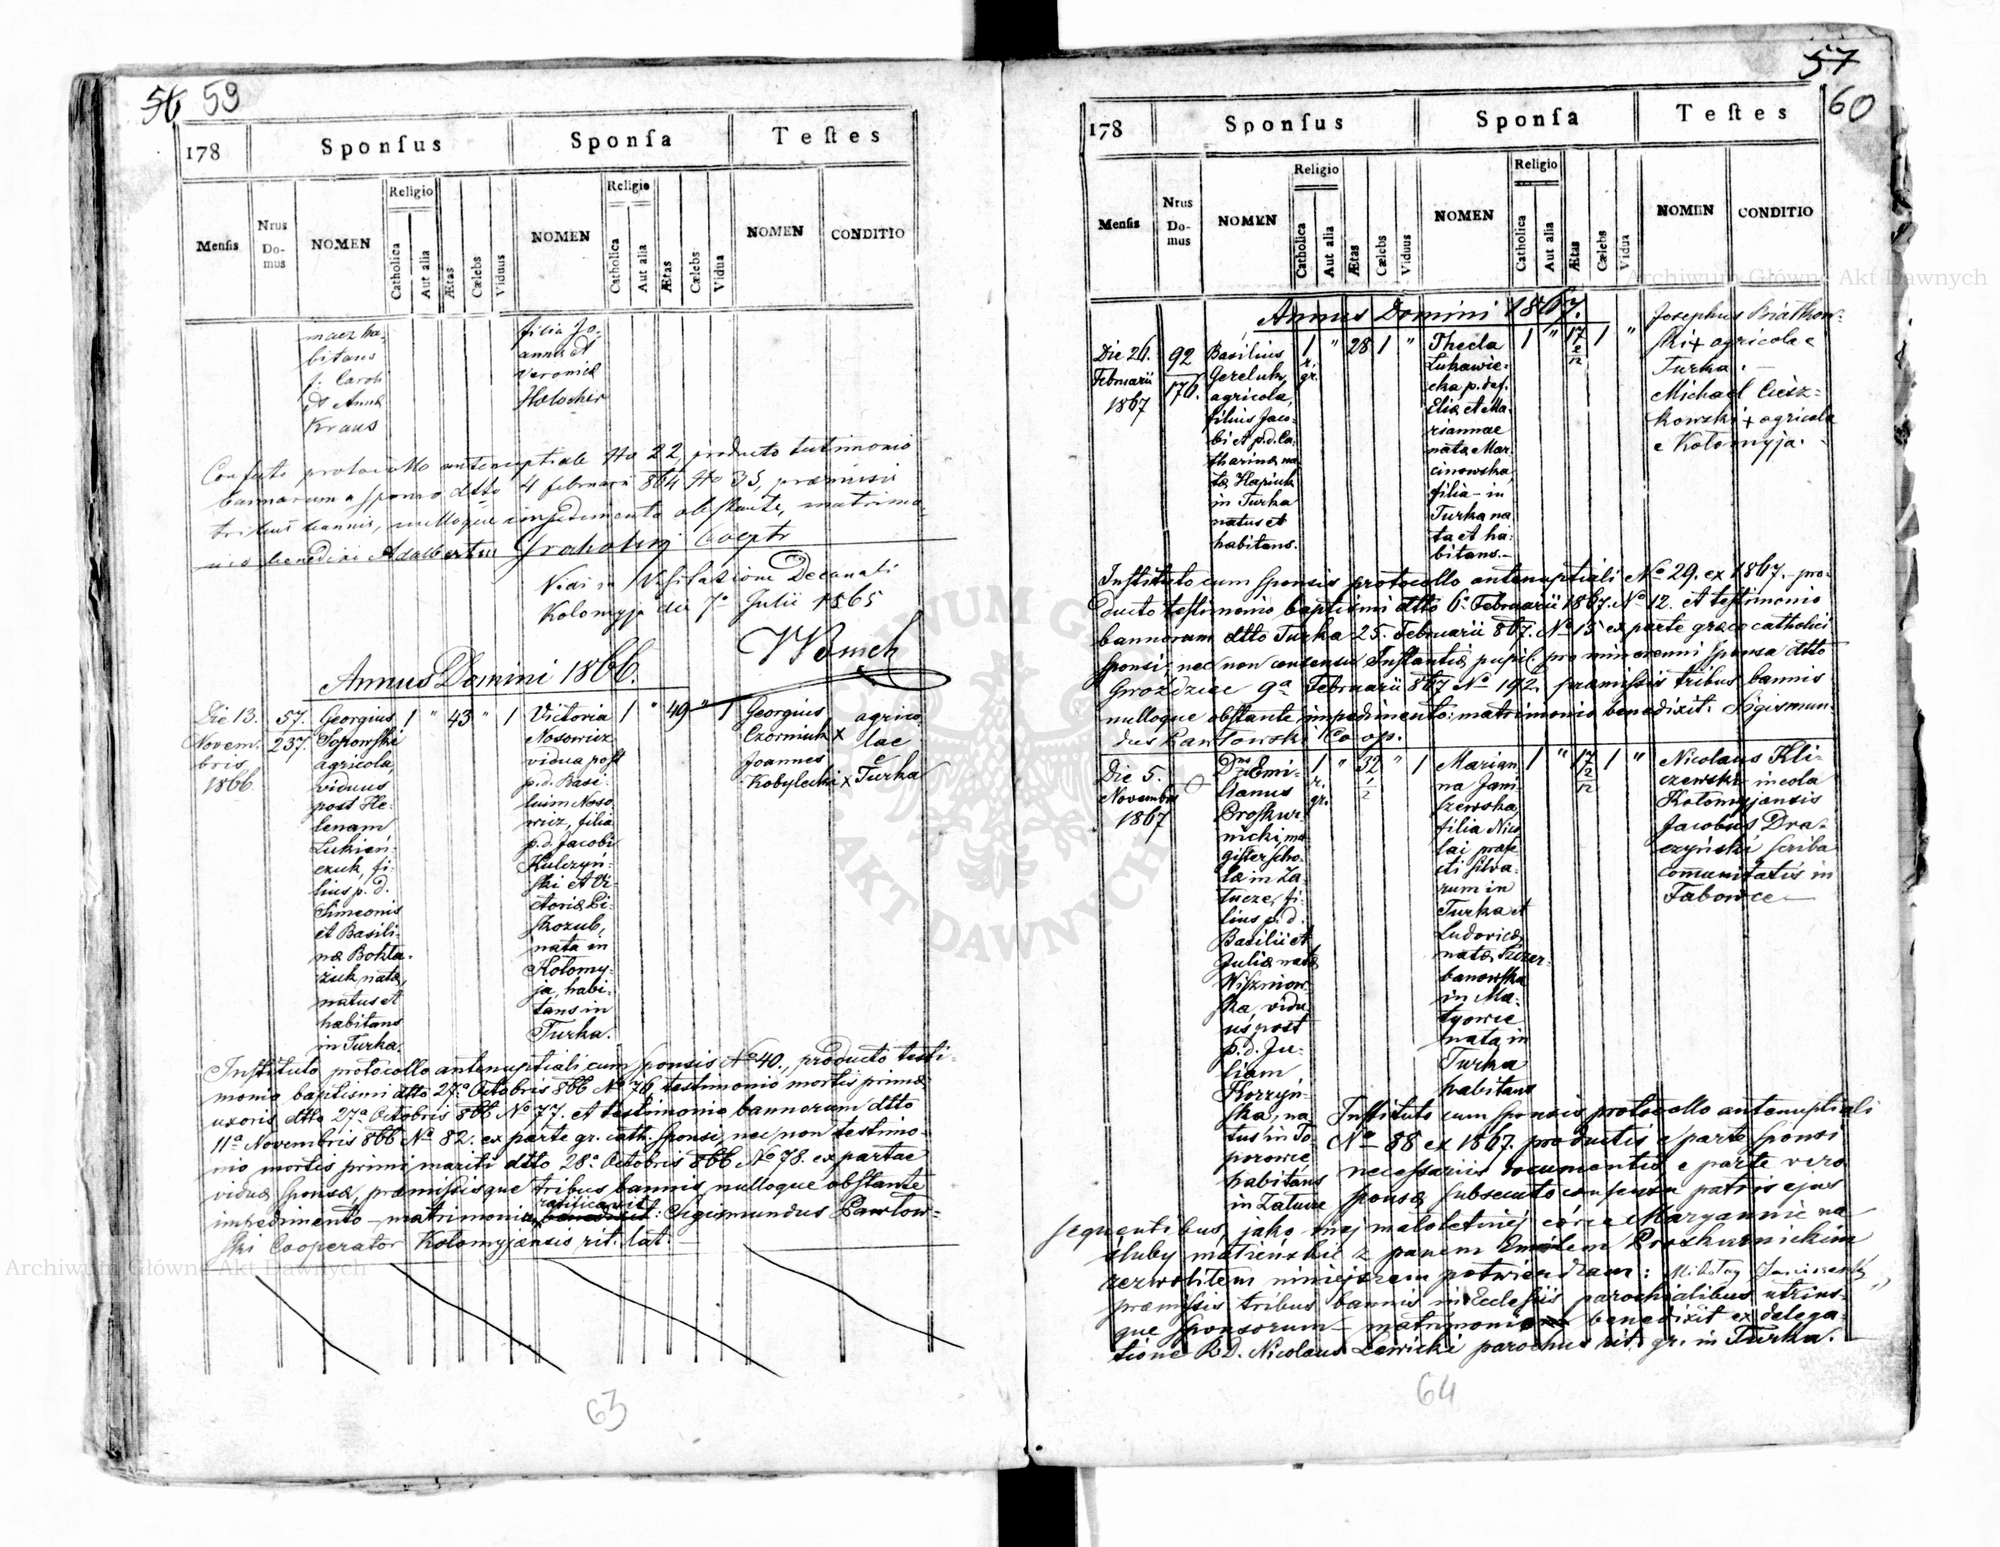 56 59
178 Sponsus Sponsa Testes
Mensis Nrus Do-mus NOMEN Religio Catholica Aut alia Ætas Cælebs Viduus NOMEN Religio Catholica Aut alia Ætas Cælebs Vidua NOMEN CONDITIO
bitans
f. Caroli
et Anna
Kraus
filia Jo-
anna et
Veronica
Holocher
protocollo antenuptiale No 22, producto testimonio
bannorum a sponso dtto 4 februarii 864 No 35, præmissis
tribus bannis, nulloque impedimento obstante, matrimo-
nio benedixi Adalbertus Cooptr
Vidi in Visitatione Decanali
Kolomyja die 7a Julii 1865
Annus Domini 1866.
Die 13.
Novem-
bris
1866.
57.
237.
Georgius
Sopowski
agricola,
viduus
post He-
lenam
Lukien-
czuk, fi-
lius p. d.
Simeonis
et Basili-
næ Bokla-
zuk natæ,
natus et
habitans
in Turka.
1 " 43 " 1
Victoria
Nosowicz
vidua post
p. d. Basi-
lium Noso-
wicz, filia
p. d. Jacobi
Kulczyn-
ski et Vi-
ctoriæ Li-
skozub,
nata in
Kolomy-
ja, habi-
tans in
Turka.
1 " 49 " 1
Georgius
Czorniuk x
Joannes
Kobylecki x
agrico-
lae
e
Turka
Instituto protocollo antenuptiali cum sponsis No 40., producto testi-
monio baptismi dtto 27a Octobris 866 No 76 testimonio mortis primæ
uxoris dtto 27a Octobris 866 No 77. et testimonio bannorum dtto
11a Novembris 866 No 82. ex parte gr. cath. sponsi, nec non testimo-
nio mortis primi mariti dtto 28a Octobris 866 No 78. ex partae
viduæ sponsæ, præmissisque tribus bannis nulloque obstante
ratificavit
impedimento – matrimonium benedixit: Sigismundus Pawlow-
ski Cooperator Kolomyjænsis rit. lat.
63
57
60
178 Sponsus Sponsa Testes
Mensis Nrus Do-mus NOMEN Religio Catholica Aut alia Ætas Cælebs Viduus NOMEN Religio Catholica Aut alia Ætas Cælebs Vidua NOMEN CONDITIO
Annus Domini 1867.
Die 26.
Februarii
1867
92
176.
Basilius
Gereluk,
agricola,
filius Jaco-
bi et p. d. Ca-
tharinæ na-
tæ Hapiuk
in Turka
natus et
habitans.
1 r. gr. " 28 1 "
Thecla
Lukawie-
cka p. def.
Eliæ et Ma-
riannae
nata Mar-
cinowska,
filia – in
Turka na-
ta et ha-
bitans. –
1 " 17 2/12 1 "
Josephus Białkow-
ski + agricola e
Turka. –
Michael Ciesz-
kowski + agricola
e Kolomyja.
Instituto cum sponsis protocollo antenuptiali No 29. ex 1867. pro-
ducto testimonio baptismi dtto 6a Februarii 1867. No 12. et testimonio
bannorum dtto Turka 25. Februarii 867. No 15 ex parte græco catholici
sponsi, nec non consensu Instantiæ pupil. pro minorenni sponsa dtto
Gwoździec 9a Februarii 867 No 192. præmissis tribus bannis
nulloque obstante impedimento: matrimonio benedixit. Sigismun-
dus Pawlowski Coop.
Die 5.
Novembris
1867
Dnus Emi-
lianus
Proskur-
nicki, ma-
gister scho-
læ in Za-
tucze, fi-
lius p. d.
Basilii et
Juliæ natæ
Wiszniow-
ska, vidu-
us post
p. d. Ju-
liam
Korzyn-
ska, na-
tus in To-
porowce,
habitans
in Zatucze
1 r. gr. " 32 1/2 " 1
Marian-
na Jani-
szewska,
filia Nico-
lai præfe-
cti silva-
rum in
Turka et
Ludovicæ
natæ Szczer-
banowska
in Ma-
tyowce
nata, in
Turka
habitans
1 " 17 2/12 1 "
Nicolaus Kli-
czewski incola
Kolomyjænsis
Jacobus Dra-
czyński scriba
comunitatis in
Fabowce –
Instituto cum sponsis protocollo antenuptiali
No 88 ex 1867. productis e parte sponsi
necessariis documentis e parte vero
sponsæ subsecuto consensu patris ejus
sequentibus, jako mej małoletniej córce Maryannie na
śluby małżeńskie z panem Emilem Proskurnickim
zezwoliłem niniejszem potwierdzam: Mikołaj Janiszewski
præmissis tribus bannis in Eclesiis parochialibus utrius-
que sponsorum – matrimonium benedixit ex delega-
tione R. D. Nicolaus Lewicki parochus rit. gr. in Turka.
64
Archiwum Główne Akt Dawnych
Archiwum Główne Akt Dawnych
ARCHIWUM GŁÓWNE AKT DAWNYCH